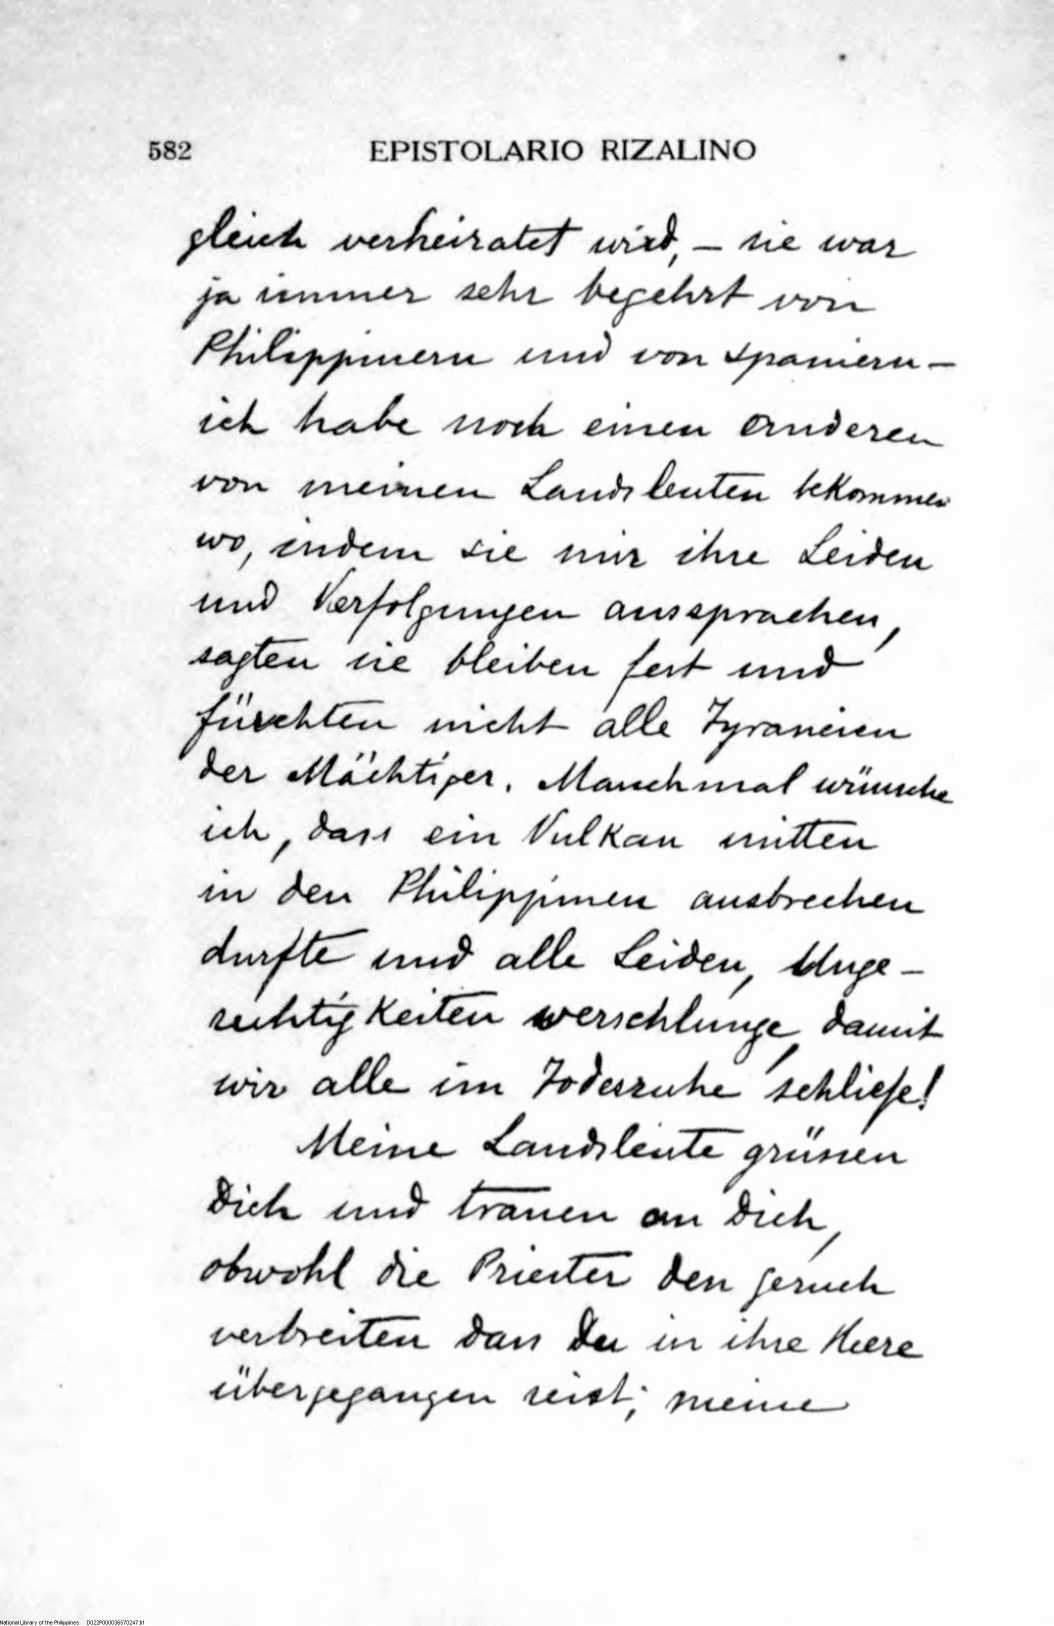 582 EPISTOLARIO RIZALINO
gleich verheiratet wird, — sie war
ja immer sehr begehrt von
Philippinern und von Spaniern —
ich habe noch einen anderen
von meinen Landsleuten bekommen
wo, indem sie mir ihre Leiden
und Verfolgungen aussprachen,
sagten sie bleiben fest und
fürchten nicht alle Tyraneien
der Mächtiger. Manchmal wünsche
ich, dass ein Vulkan mitten
in den Philippinen ausbrechen
durfte und alle Leiden, Unge-
rechtigkeiten verschlunge, damit
wir alle im Todesruhe schliefe!
Meine Landsleute grüssen
Dich und trauen an Dich,
obwohl die Priester den geruch
verbreiten dass Du in ihre Heere
übergegangen seist; meine
National Library of the Philippines